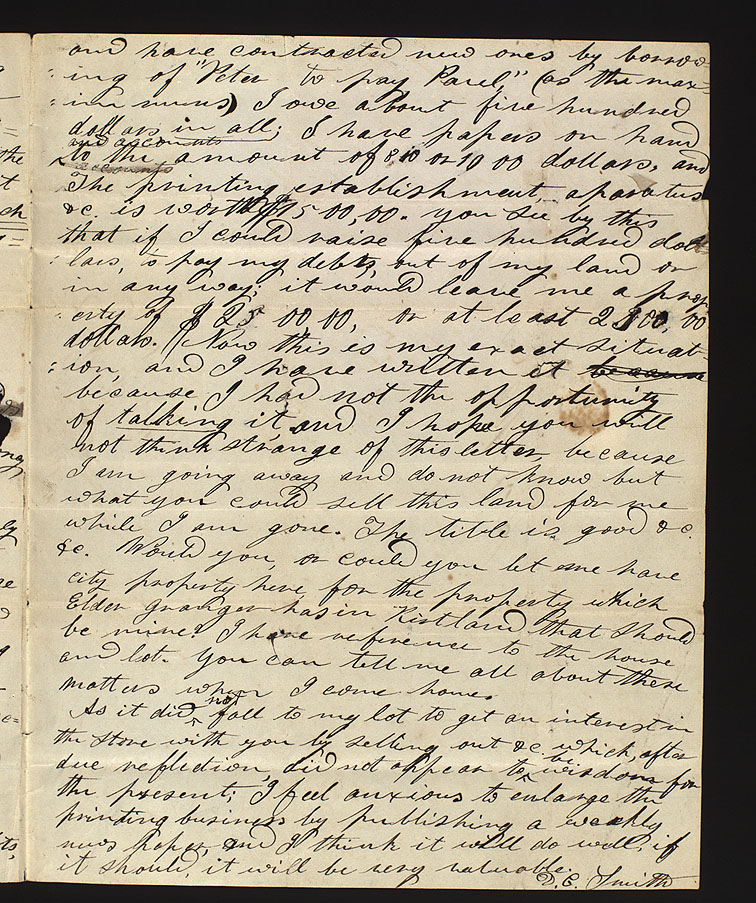 and have contracted new ones by borrow=
ing of "Peter to pay Paul" (as the max-
im runs) I owe about five hundred
dollars in all; I have papers on hand
and accounts
to the amount of 8,00 or 10 00 dollars, and
accounts
The printing establishment, aparatus
&c. is worth $15 00,00. you see by this
that if I could raise five hundred dol
lars, to pay my debts, out of my land or
in any way; it would leave me a prop
erty of $ 25 00 00, or at least 2 00,00
dollars. Now this is my exact situat-
ion, and I have written it because
because I had not the opportunity
of talking it and I hope you will
not think strange of this letter, because
I am going away and do not know but
what you could sell this land for me
while I am gone. The title is good &c.
&c. Would you, or could you let me have
city property here, for the property which
Elder Granger has in Kirtland, that should
be mine? I have reference to the house
and lot. You can tell me all about these
matters when I come home.
As it did not fall to my lot to get an interest in
the store with you by selling out &c. which, after
due reflection, did not appear to be wisdom for
the present; I feel anxious to enlarge the
printing business by publishing a weekly
news paper, and I think it will do well, if
it should, it will be very valuable.
D. C. Smith
the
t
ch